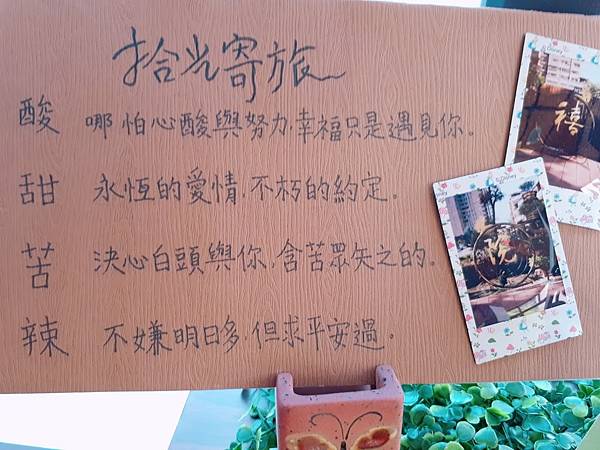 拾光寄旅
酸 哪怕心酸與努力,幸福只是遇見你。
甜 永恆的愛情,不朽的約定。
苦 決心白頭與你,含苦眾矢之的。
辣 不嫌明日多,但求平安過。
Disney
禧
Disney